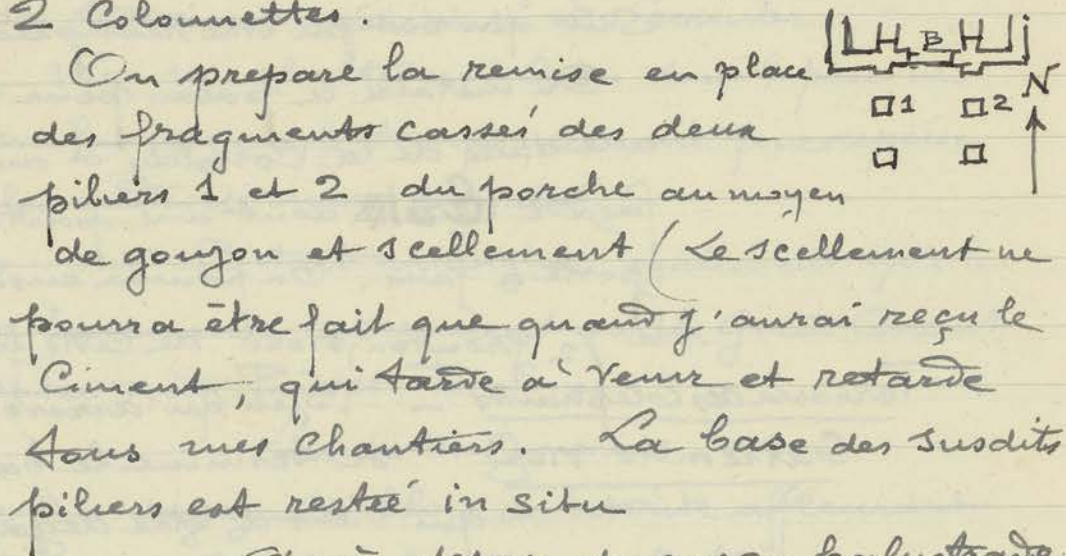 2 Colonnettes.
B
On prepare la remise en place N
des fragments cassés des deux 1 2
piliers 1 et 2 du porche au moyen
de goujon et scellement (Le scellement ne
pourra être fait que quand j'aurai reçu le
Ciment, qui tarde à venir et retarde
tous mes chantiers. La base des susdits
piliers est restée in situ